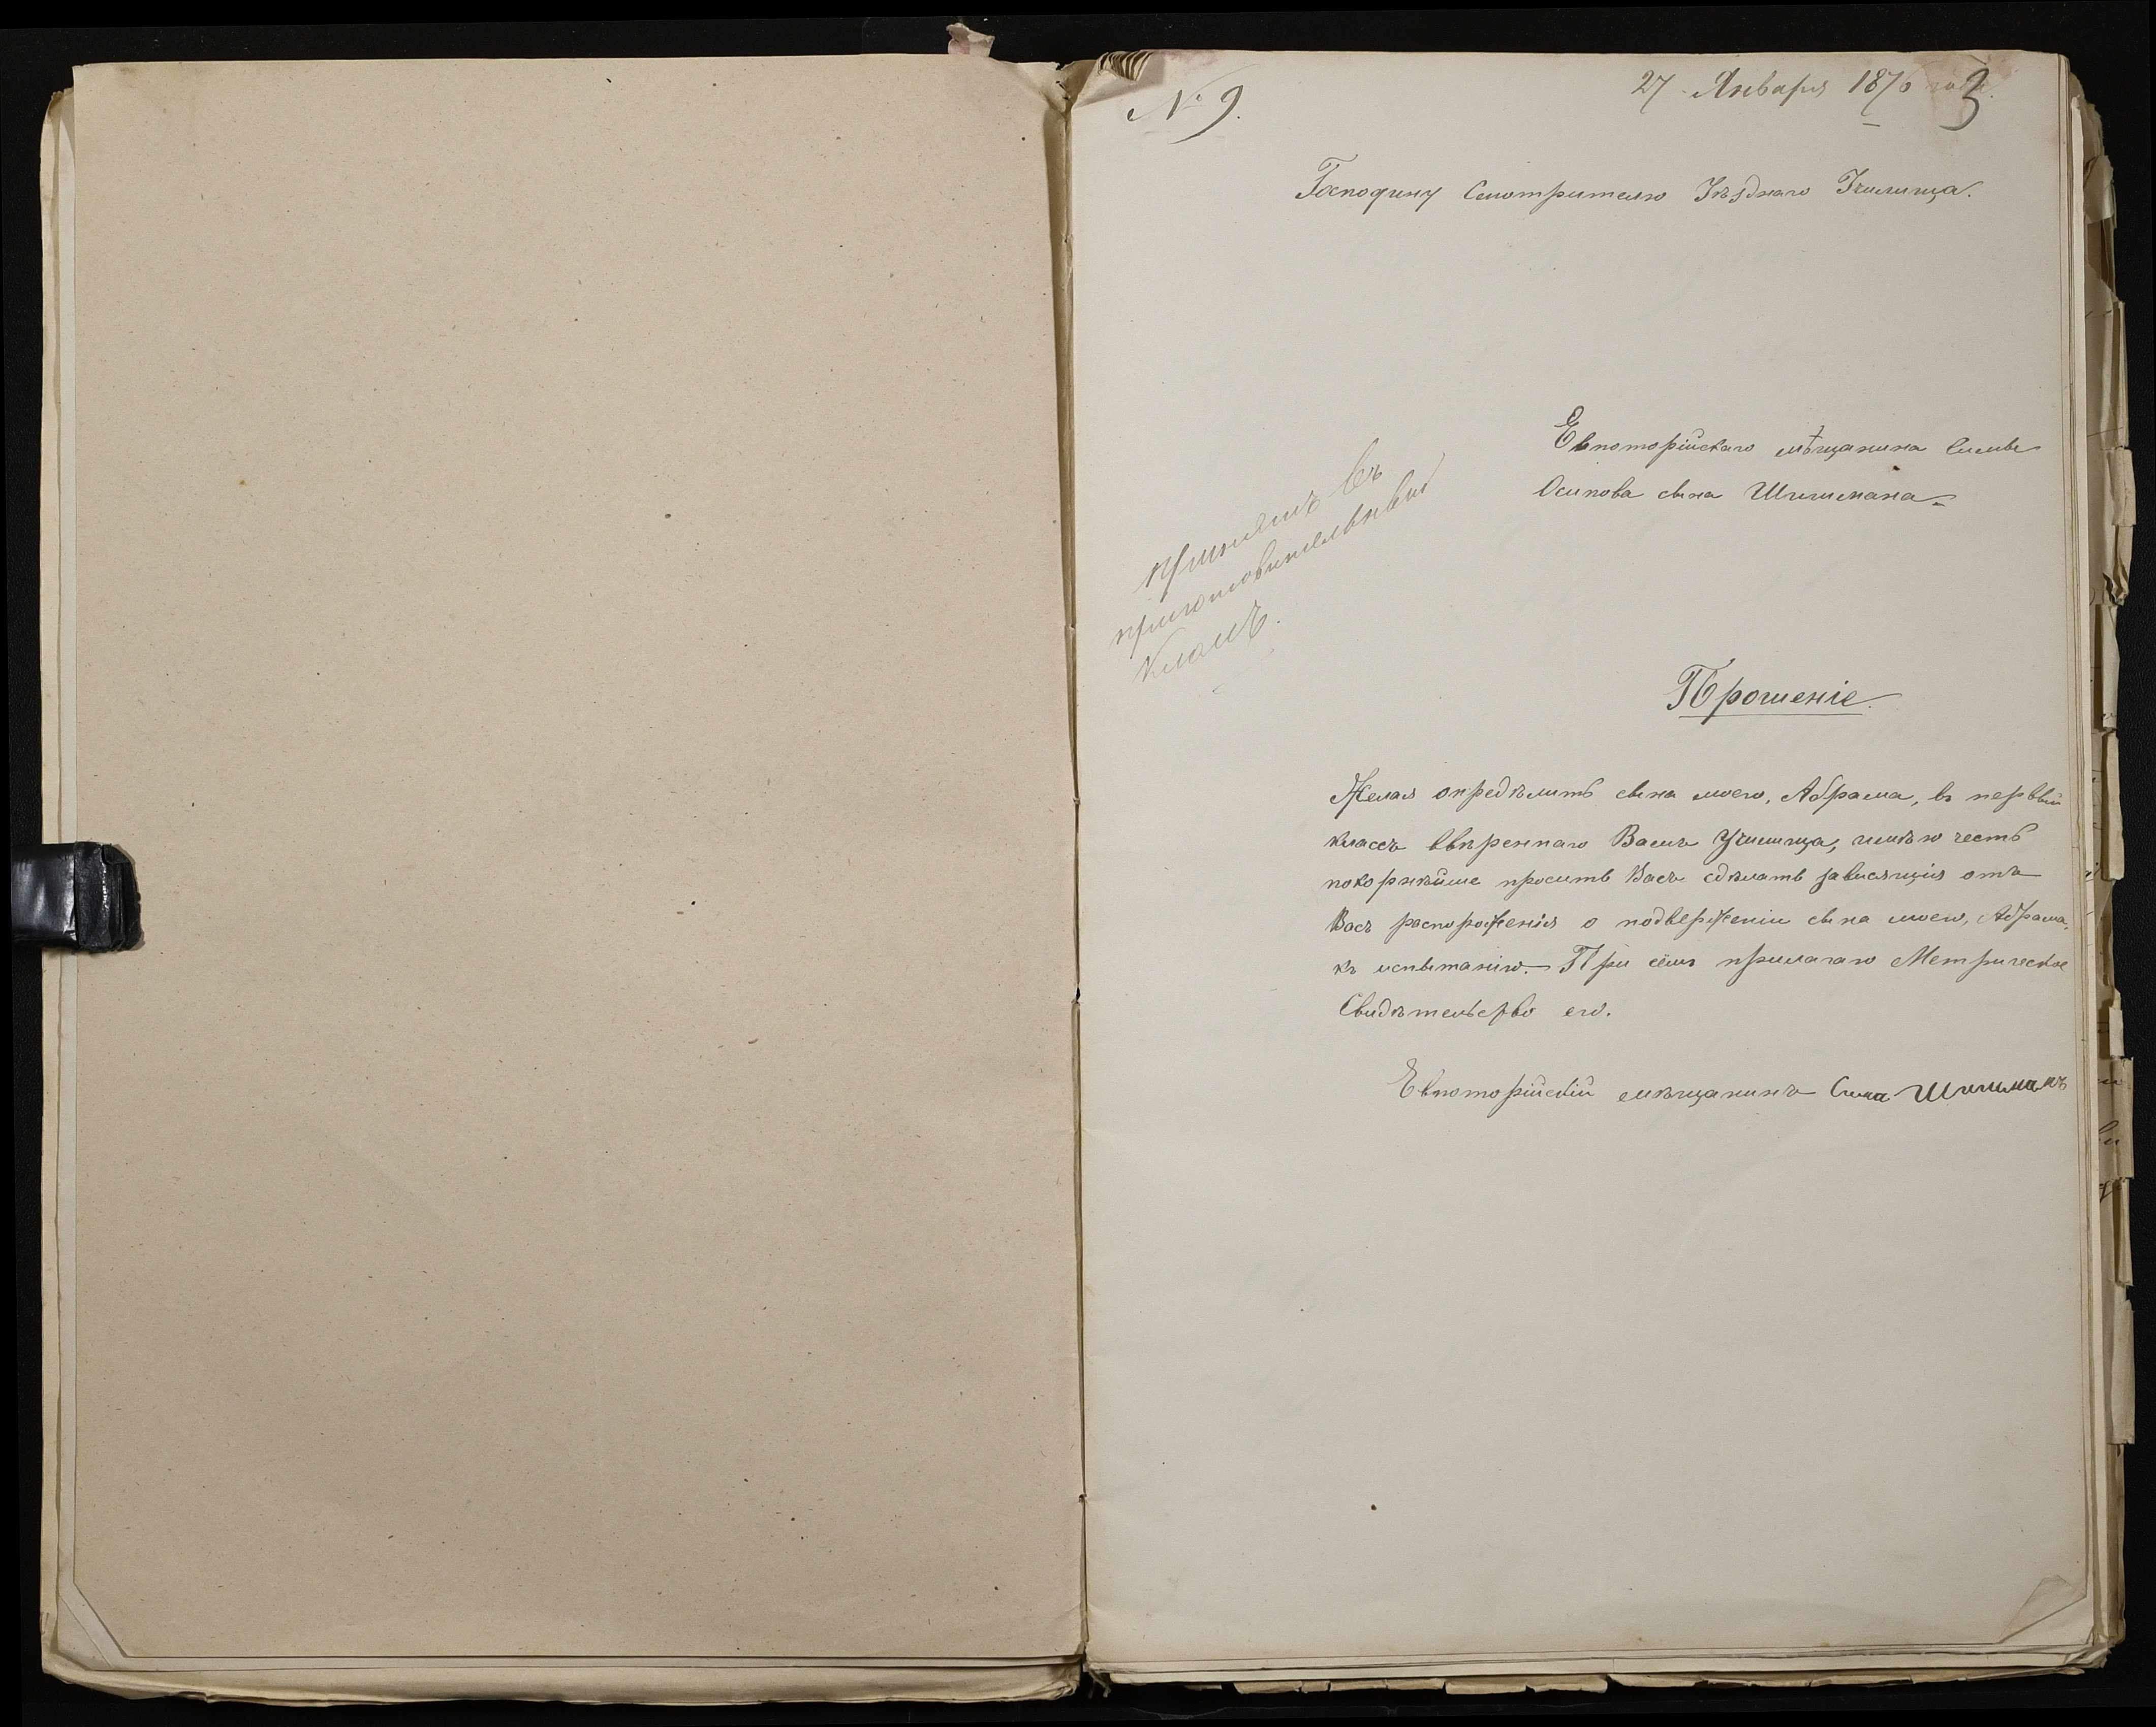 № 9.
27 Января 1876 года.
3
Господину Смотрителю Уѣзднаго Училища.
Евпоторійскаго мѣщанина Симы
Осипова сына Шишмана
принятъ въ
приготовительный
классъ.
Прошеніе.
Желая опредѣлить сына моего, Абрама, въ первый
классъ ввѣреннаго Вамъ Училища, имѣю честь
покорнѣйше просить Васъ сдѣлать зависящія отъ
Васъ распоряженія о подверженіи сына моего, Абрама,
къ испытанію. — При сёмъ прилагаю Метрическое
Свидѣтельство его.
Евпоторійскій мѣщанинъ Сима Шишманъ